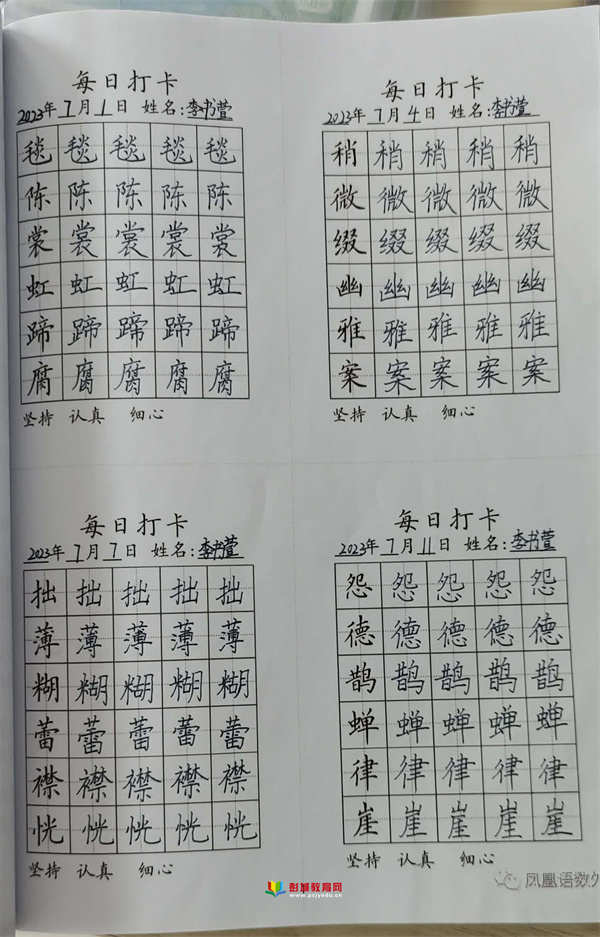 每日打卡
2023年7月1日 姓名:李书萱
毯 毯 毯 毯 毯
陈 陈 陈 陈 陈
裳 裳 裳 裳 裳
虹 虹 虹 虹 虹
蹄 蹄 蹄 蹄 蹄
腐 腐 腐 腐 腐
坚持 认真 细心
每日打卡
2023年7月4日 姓名:李书萱
稍 稍 稍 稍 稍
微 微 微 微 微
缀 缀 缀 缀 缀
幽 幽 幽 幽 幽
雅 雅 雅 雅 雅
案 案 案 案 案
坚持 认真 细心
每日打卡
2023年7月7日 姓名:李书萱
拙 拙 拙 拙 拙
薄 薄 薄 薄 薄
糊 糊 糊 糊 糊
蕾 蕾 蕾 蕾 蕾
襟 襟 襟 襟 襟
恍 恍 恍 恍 恍
坚持 认真 细心
每日打卡
2023年7月11日 姓名:李书萱
怨 怨 怨 怨 怨
德 德 德 德 德
鹊 鹊 鹊 鹊 鹊
蝉 蝉 蝉 蝉 蝉
律 律 律 律 律
崖 崖 崖 崖 崖
坚持 认真 细心
凤凰语数
彭城教育网
www.pcjyedu.cn